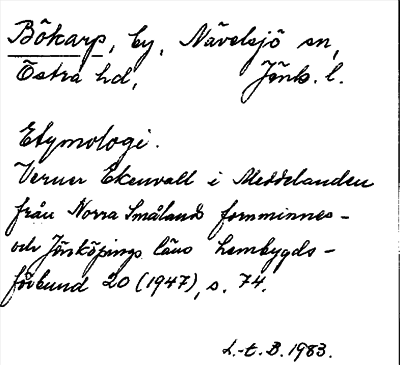 Bökarp, by, Nävelsjö sn,
Östra hd, Jönk. l.
Etymologi.
Verner Ekenvall i Meddelanden
från Norra Smålands fornminnes-
och Jönköpings läns hembygds-
förbund 20 (1947), s. 74.
L.-t. B. 1983.